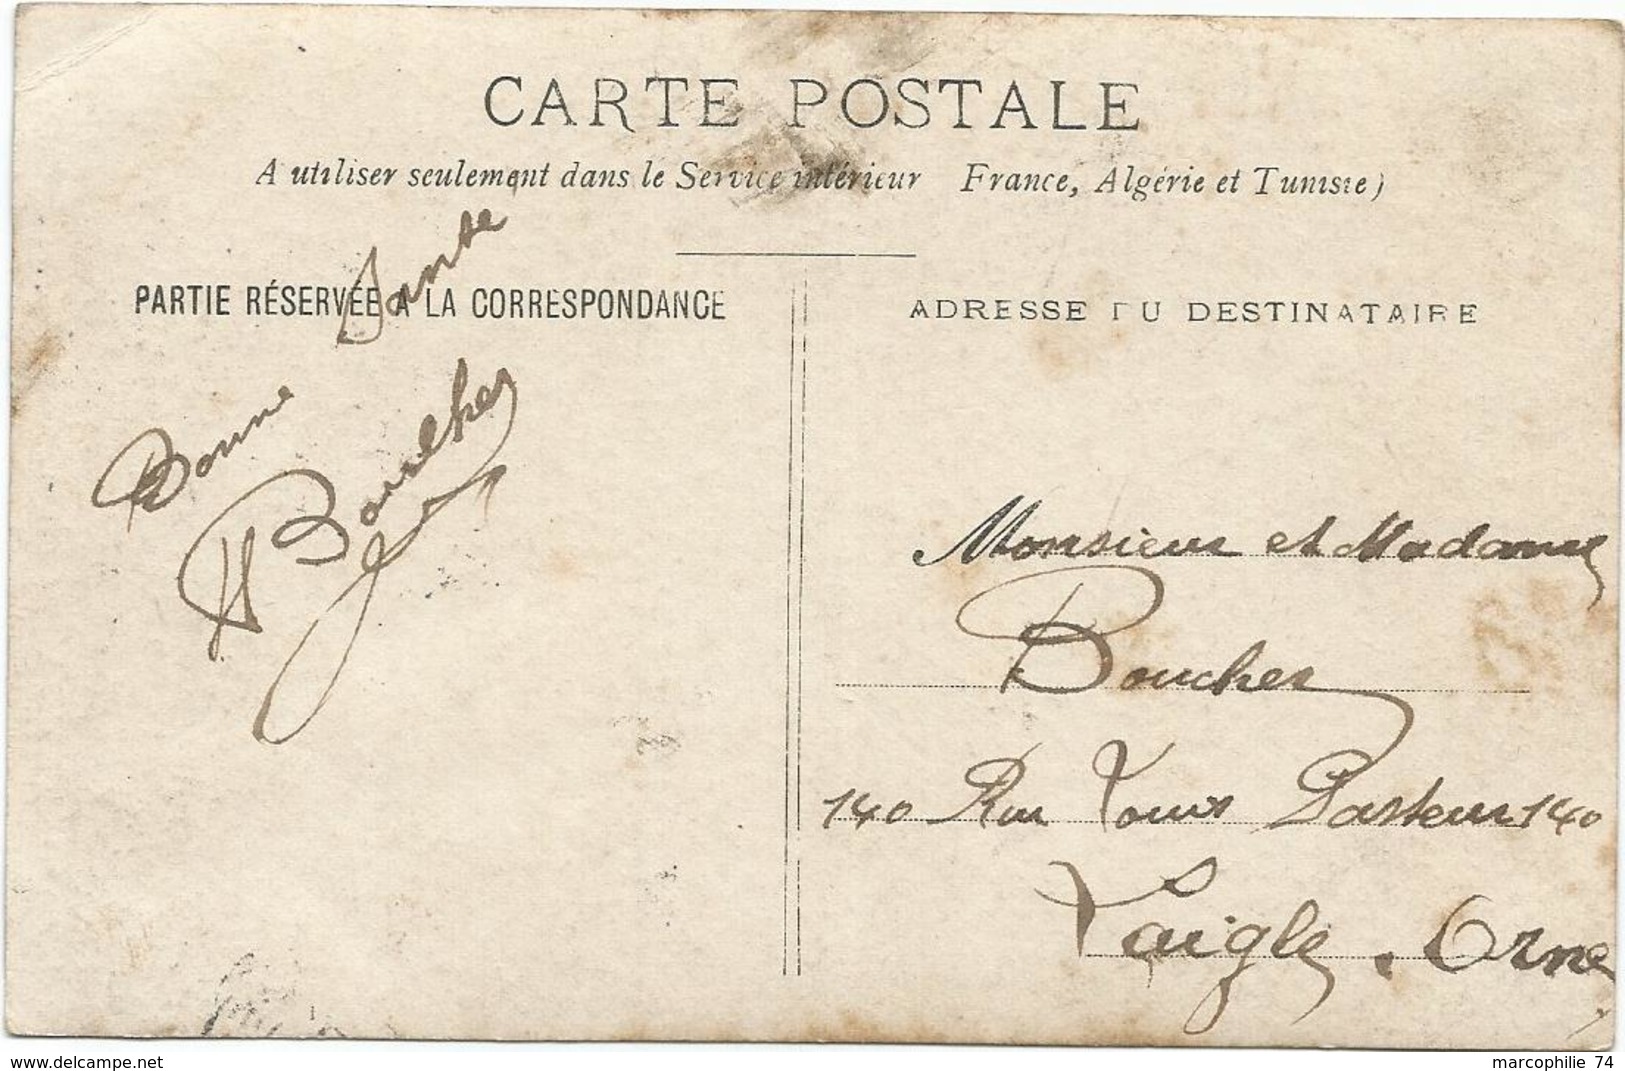 CARTE POSTALE
A utiliser seulement dans le Service intérieur France, Algérie et Tunisie)
PARTIE RÉSERVÉE A LA CORRESPONDANCE
Bonne Sante
ADRESSE DU DESTINATAIRE
Monsieur et Madame
Boucher
140 Rue Louis Pasteur 140
Laigle. Orne
marcophilie 74
http://www.delcampe.net